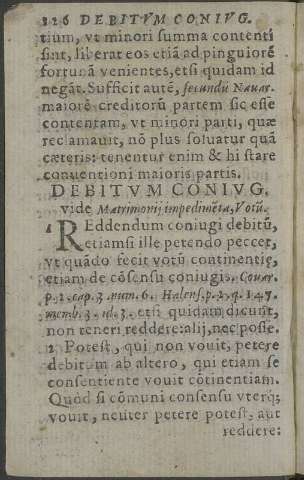 126 DEBITVM CONIVG.
tium, vt minori summa contenti
sint, liberat eos etiã ad pinguiorẽ
fortunã venientes, etsi quidam id
negãt. Sufficit autẽ, secundũ Nauar.
maiorẽ creditorũ partem sic esse
contentam, vt minori parti, quæ
reclamauit, nõ plus soluatur quã
cæteris: tenentur enim & hi stare
conuentioni maioris partis.
DEBITVM CONIVG.
vide Matrimonij impedimẽta, Votũ.
1 REddendum coniugi debitũ,
etiamsi ille petendo peccet,
vt quãdo fecit votũ continentię,
etiam de cõsensu coniugis. Couar.
p. 2. cap. 3. num. 6. Halens. p. 2. q. 147.
memb. 3. ad. 3. etsi quidam dicunt,
non teneri reddere: alij, nec posse.
2 Potest, qui non vouit, petere
debitum ab altero, qui etiam se
consentiente vouit cõtinentiam.
Quod si cõmuni consensu vterq;
vouit, neuter petere potest, aut
reddere: